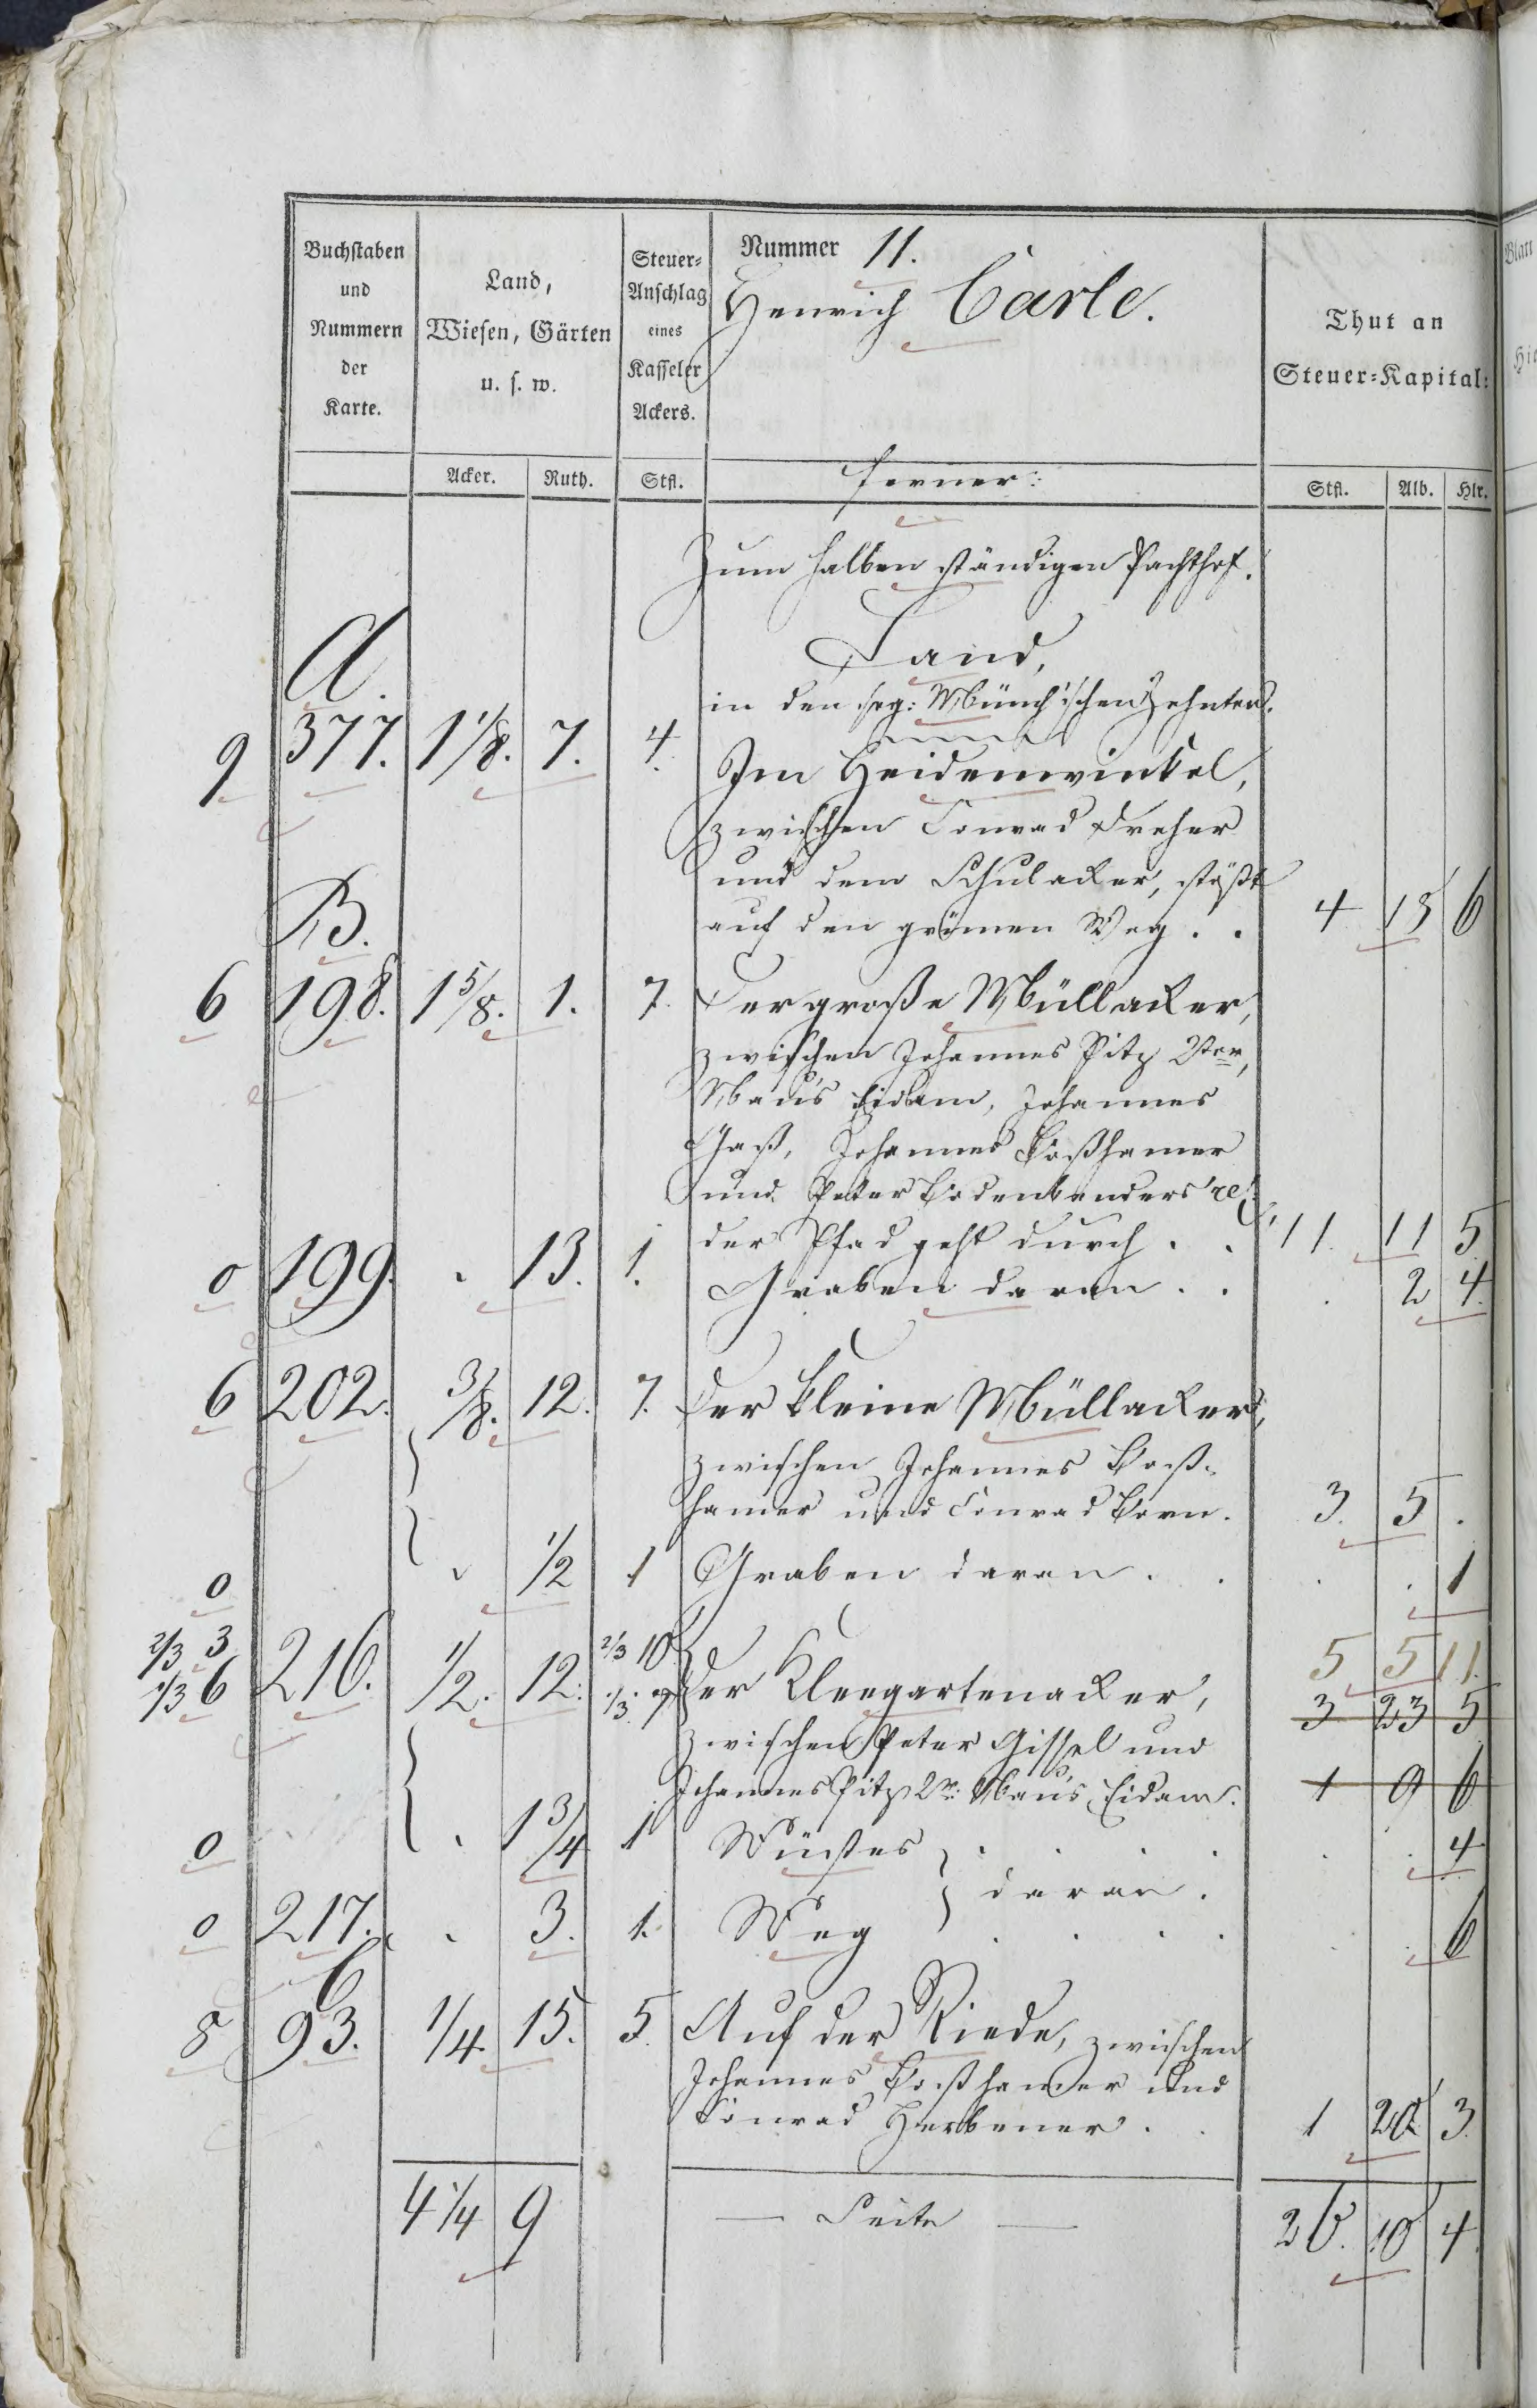 Buchstaben
und
Nummern
der
Karte.
Land,
Wiesen, Gärten
u. s. w.
Steuer-
Anschlag
eines
Kasseler
Ackers.
Nummer 11.
Henrich Carle.
Thut an
Steuer-Kapital:
Acker. Ruth. Stfl. ferner: Stfl. Alb. Hlr.
Zum halben ständigen Pachthof.
A. Land,
in den sog: Münch'schen Zehnten.
9 377. 1 1/8. 7. 4. Im Heidenwinkel,
zwischen Conrad Dreher
und dem Schulacker, stößt
B. auf den grünen Weg . . 4 15 6
6 198. 1 5/8. 1. 7. Der große Müllacker,
zwischen Johannes Pitz 2ter,
Maus Eidam, Johannes
Johannes Boßhamer
und Peter Bodenbenders rel.
der Pfad geht durch . . 11. 11 5
0 199. . 13. 1. Graben daran . . . 2 4.
6 202. 3/8. 12. 7. Der kleine Müllacker,
zwischen Johannes Boß-
hamer und Conrad Born. 3. 5 .
0 1/2 1 Graben daran . . . . 1
2/3 3 2/3 10 5 5 11.
1/3 6 216. 1/2. 12. 1/3. 7 Der Kleegartenacker, 3 23 5
zwischen Peter Gissel und
Johannes Pitz 2r. Maus Eidam. 1 9 6
0 . 1 3/4 1 Wüstes . . . . . . 4
daran.
0 217. . 3. 1. Weg . . . . . . 6
C
8 93. 1/4. 15. 5. Auf der Riede, zwischen
Johannes Boßhamer und
Conrad Herbener . . 1 20 3.
4 1/4 9 — Seite — 26. 10 4.
Blatt